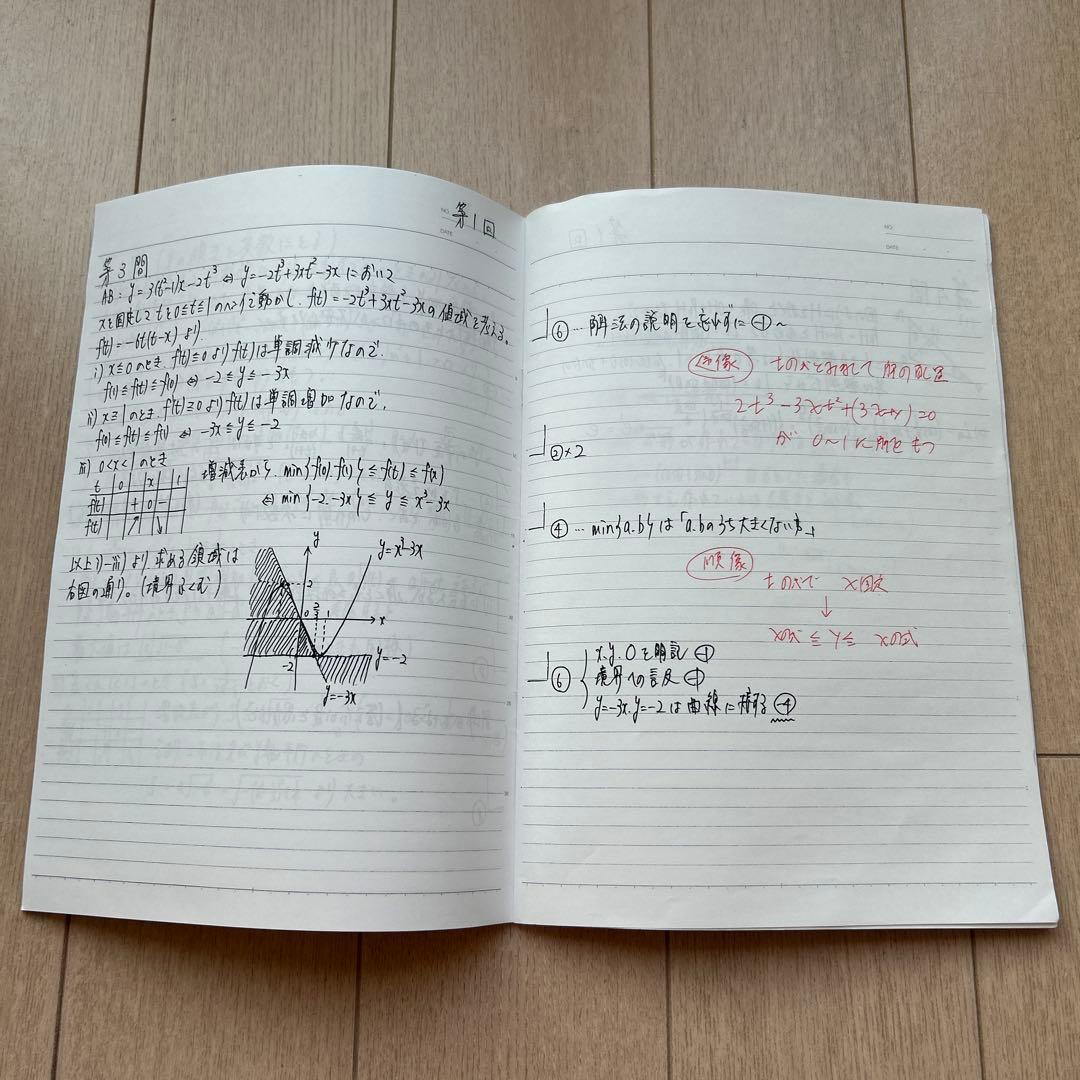 NO.
DATE
第1回
第3問
AB:y=3(t²-1)x-2t³⇔y=-2t³+3xt²-3xにおいて
xを固定してtを0≦t≦1の 動かし、f(t)=-2t³+3xt²-3xの値域を考える。
f'(t)=-6t(t-x)より
i) x≦0のとき、f'(t)≦0よりf(t)は単調減少なので、
f(1)≦f(t)≦f(0)⇔-2≦y≦-3x
ii) x≧1のとき、f'(t)≧0よりf(t)は単調増加なので、
f(0)≦f(t)≦f(1)⇔-3x≦y≦-2
iii) 0<x<1のとき
t 0 x 1
f'(t) + 0 -
f(t) ↗ ↘
増減表から、min{f(0),f(1)}≦f(t)≦f(x)
⇔min{-2,-3x}≦y≦x³-3x
以上i)~iii)より求める領域は
右図の通り。(境界ふくむ)
y
y=x³-3x
2
0 2/3 1 x
-2
y=-2
y=-3x
NO.
DATE
⑥…解法の説明を忘れずに㊀~
逆像 tの とみなして 解の配置
2t³-3xt²+(3x+y)=0
が 0~1に解をもつ
②×2
④…min{a,b}は「a,bのうち大きくない方」
順像
tの で x固定
↓
xの式≦y≦xの式
⑥ x,y,Oを明記㊀
境界への言及㊀
y=-3x,y=-2は曲線に接する -4